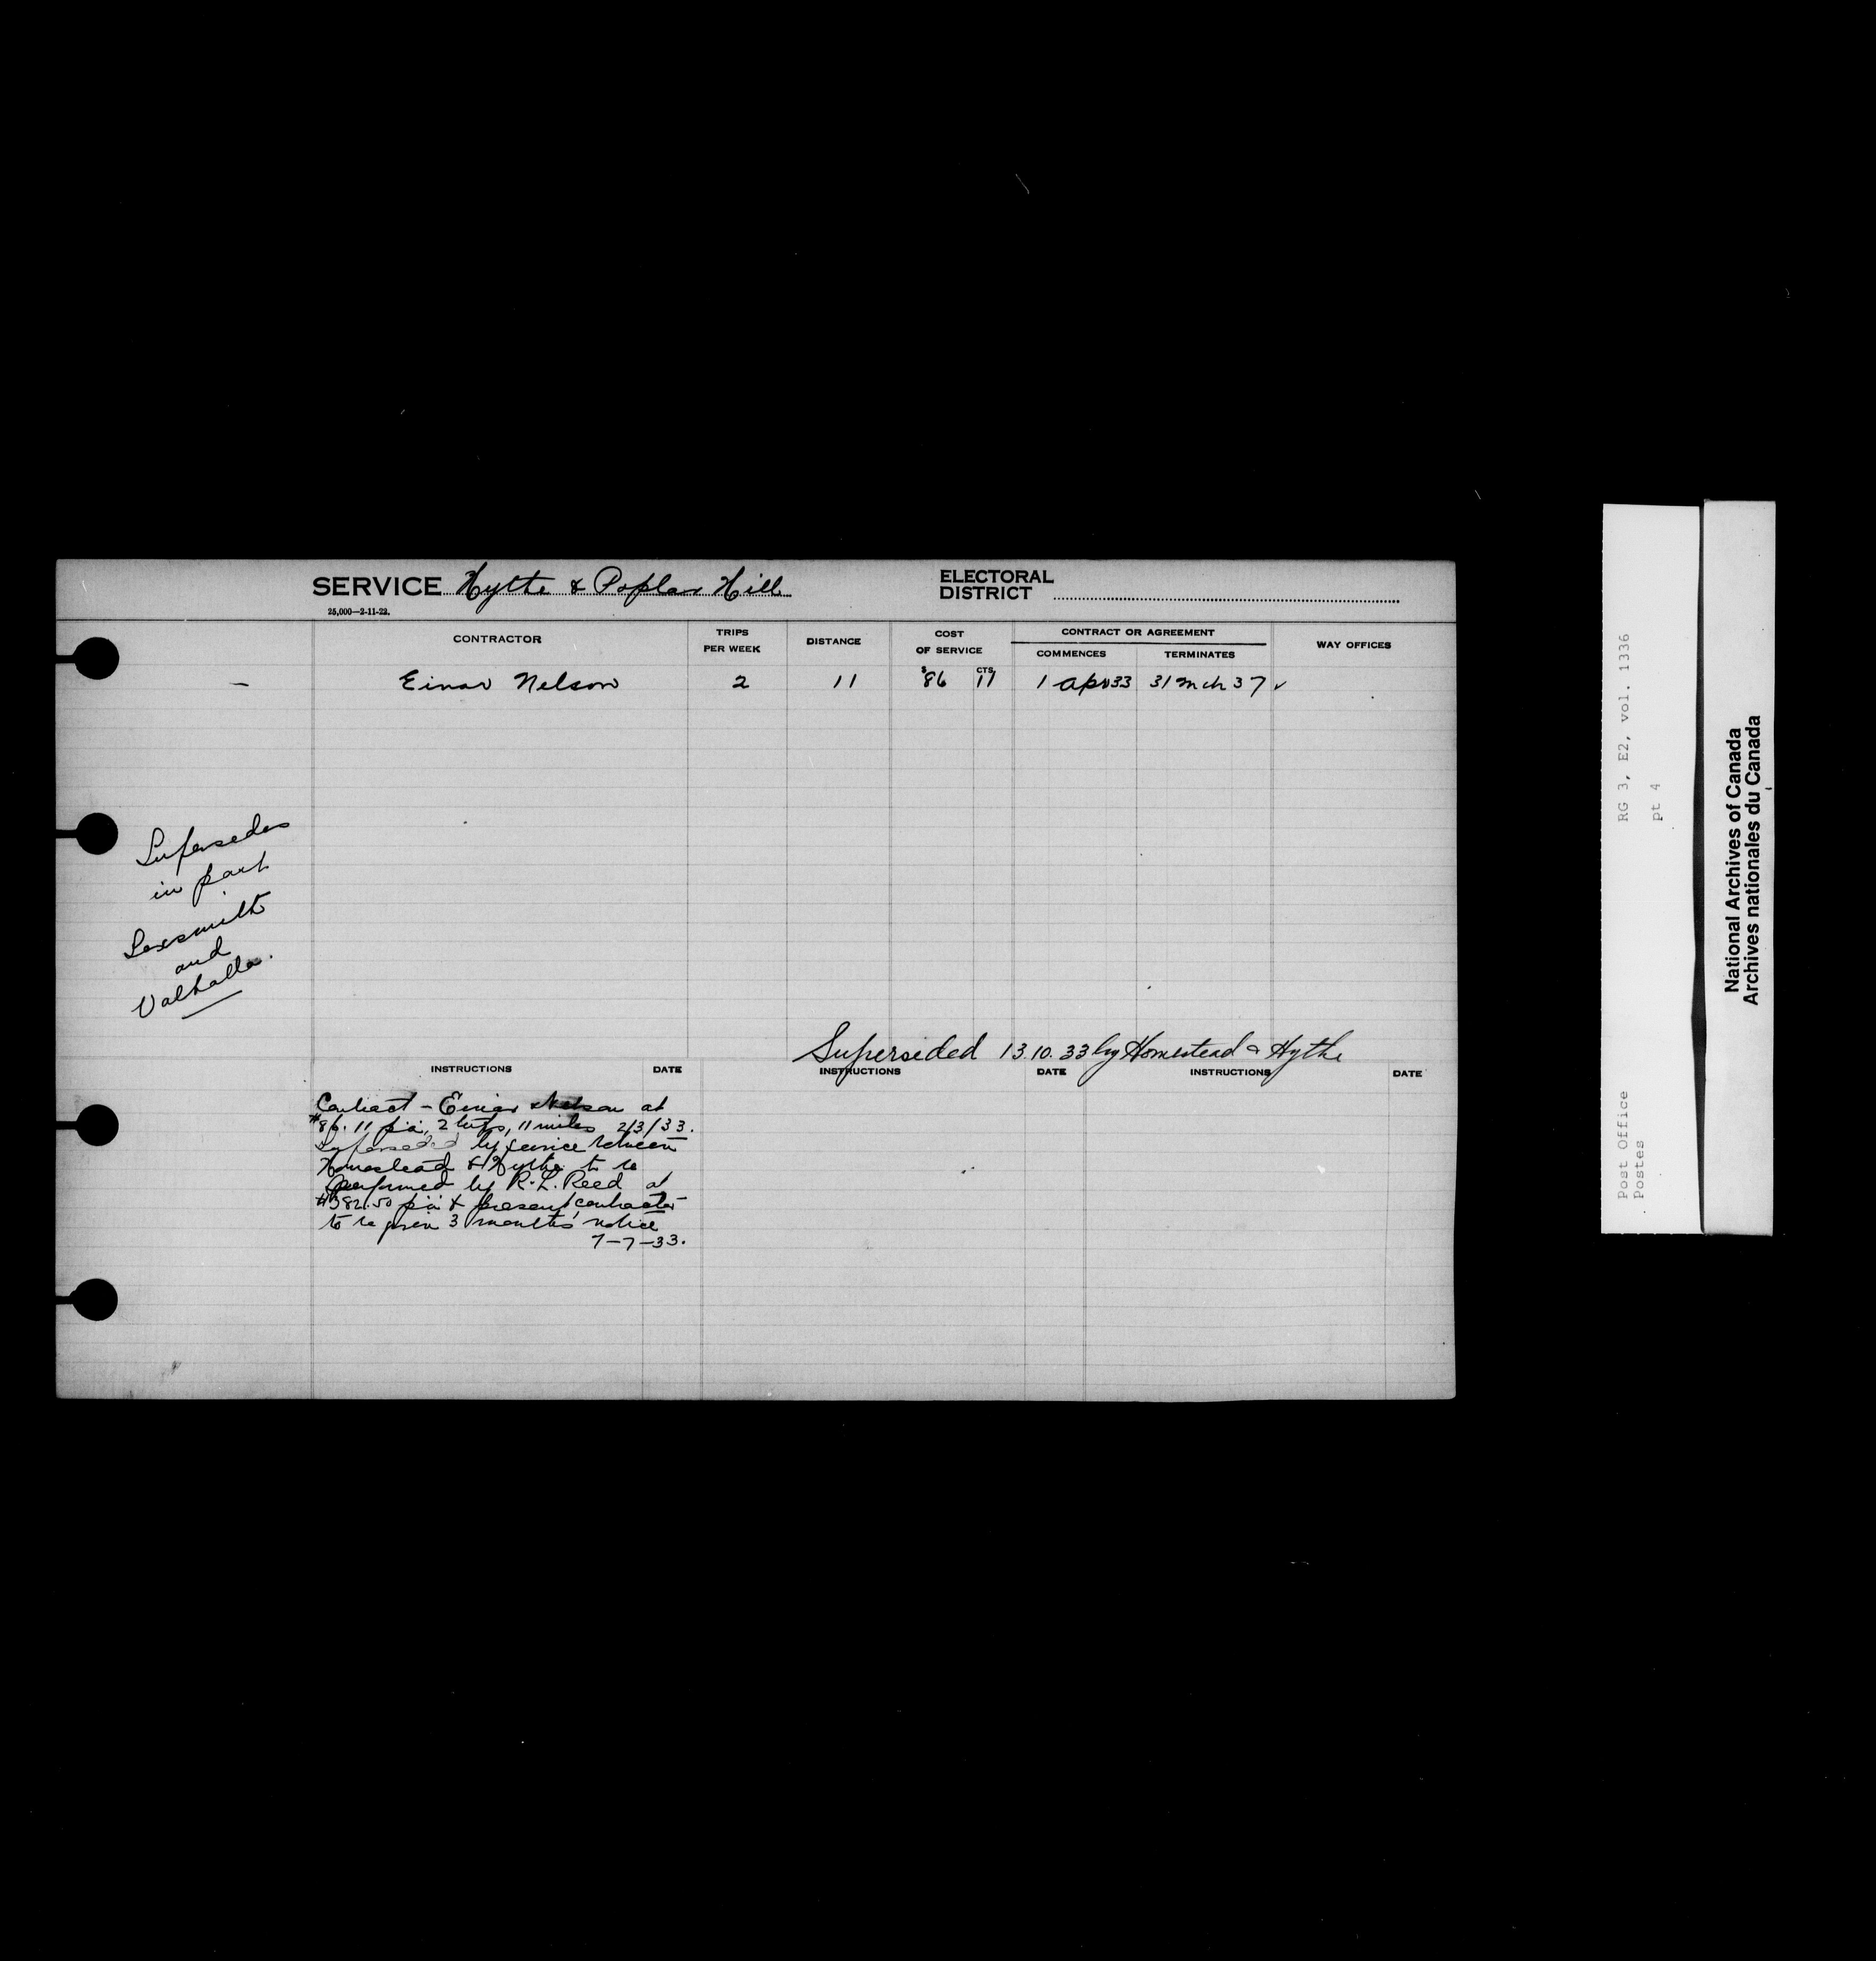 SERVICE Hythe & Poplar Hill
25,000—2-11-22.
ELECTORAL
DISTRICT
CONTRACTOR
TRIPS
PER WEEK
DISTANCE
COST
OF SERVICE
CONTRACT OR AGREEMENT
COMMENCES
TERMINATES
WAY OFFICES
$ CTS.
— Einar Nelson 2 11 86 11 1 Apr 33 31 Mch 37 ✓
Supersedes
in part
Sexsmith
and
Valhalla.
Superseded 13.10.33 by Homestead & Hythe
INSTRUCTIONS DATE INSTRUCTIONS DATE INSTRUCTIONS DATE
Contract – Einar Nelson at
$86.11 p.a., 2 trips, 11 miles 2/3/33.
Superseded by service between
Homestead & Hythe to be
performed by R. L. Reed at
$382.50 p.a. & present contractor
to be given 3 months' notice
7–7–33.
RG 3, E2, vol. 1336
pt 4
Post Office
Postes
National Archives of Canada
Archives nationales du Canada